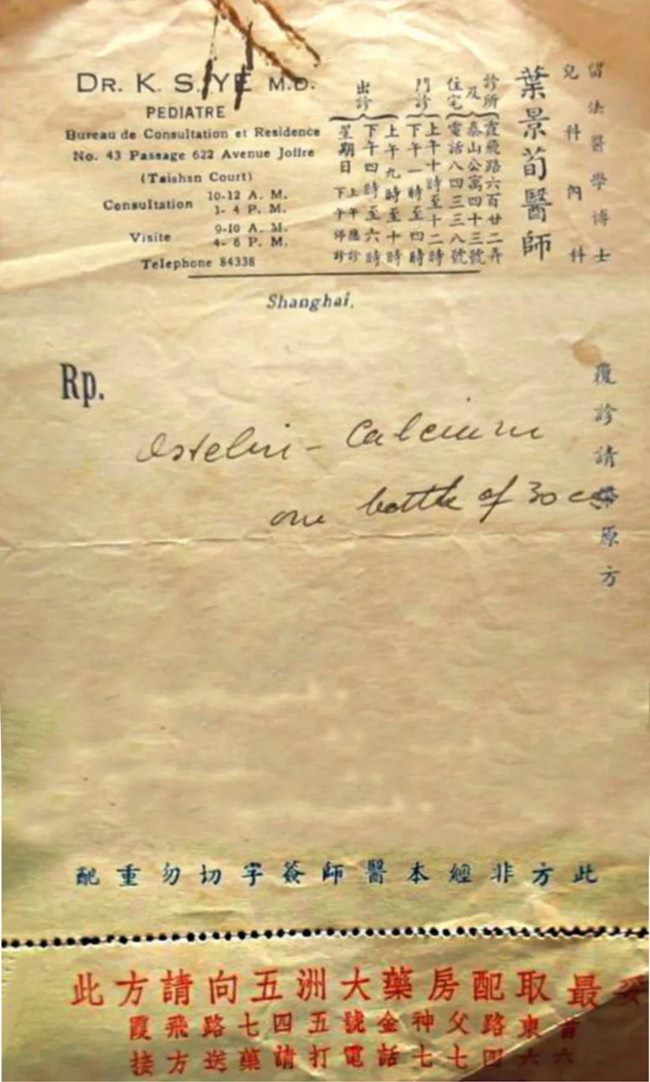 DR. K. S. YE M.D.
PEDIATRE
Bureau de Consultation et Residence
No. 43 Passage 622 Avenue Joffre
(Taishan Court)
Consultation 10-12 A. M.
1- 4 P. M.
Visite 9-10 A. M.
4- 6 P. M.
Telephone 84338
留法醫學博士
兒科內科
葉景荀醫師
診所及住宅
霞飛路六百廿二弄
泰山公寓四十三號
電話八四三三八號
門診
上午十時至十二時
下午一時至四時
出診
上午九時至十時
下午四時至六時
星期日
上午應診
下午停診
Shanghai,
Rp.
Ostelin - Calcium
one bottle of 30 cc
覆診請帶原方
此方非經本醫師簽字切勿重配
此方請向五洲大藥房配取最妥
霞飛路七四五號金神父路東首
接方送藥請打電話七七四六六